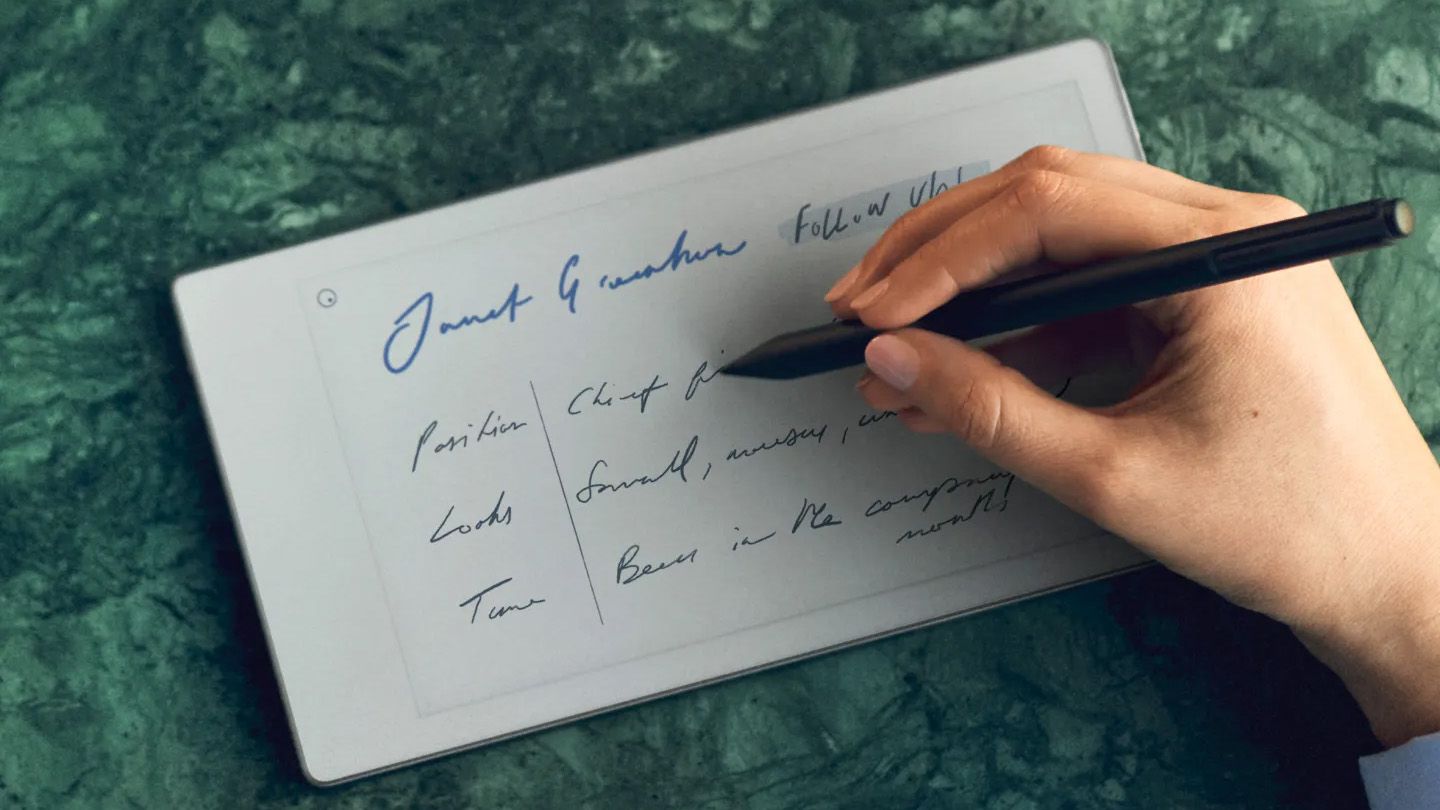 Janet
Follow Up!
Position Chief
Looks Small, mousy,
Time Been in the company
months